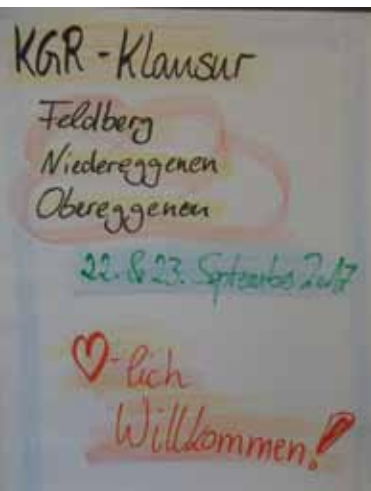 KGR - Klausur
Feldberg
Niedereggenen
Obereggenen
22. & 23. September 2017
♡-lich
Willkommen!